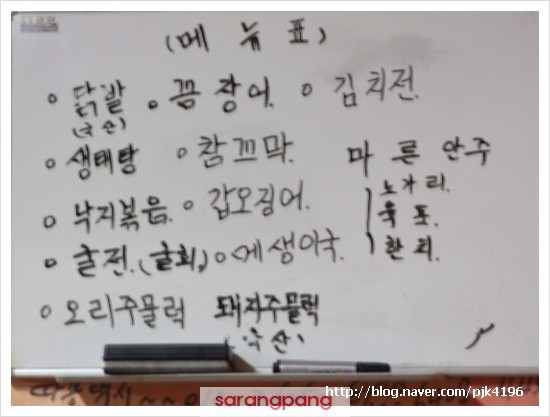 (메 뉴 표)
닭발 ∘ 꼼장어. ∘ 김치전.
(국산)
∘ 생태탕 ∘ 참꼬막. 마른안주
∘ 낙지볶음. ∘ 갑오징어. 노가리.
육포.
∘ 굴전.(굴회) ∘ 매생이국. 한치.
∘ 오리주물럭 돼지주물럭
(국산)
sarangpang
http://blog.naver.com/pjk4196